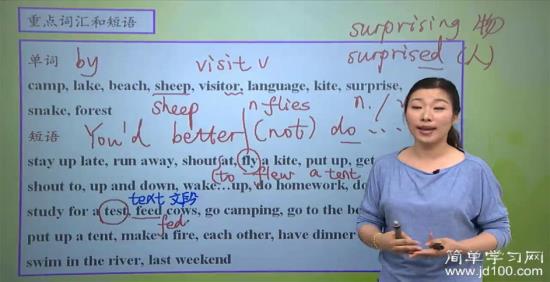 重点词汇和短语
surprising 物
surprised (人)
单词 by visit v
camp, lake, beach, sheep, visitor, language, kite, surprise,
snake, forest
sheep n flies n. /
短语 You'd better (not) do ...
stay up late, run away, shout at, fly a kite, put up, get
to flew a tent
shout to, up and down, wake…up, do homework, do
text 文段
study for a test, feed cows, go camping, go to the be
fed
put up a tent, make a fire, each other, have dinner
swim in the river, last weekend
简单学习网
www.jd100.com